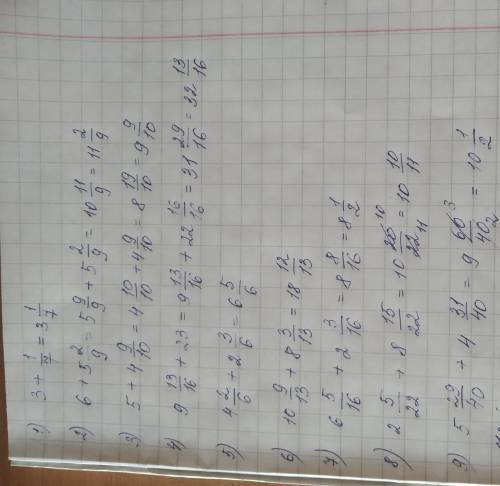 1) 3 + 1/7 = 3 1/7
2) 6 + 5 2/9 = 5 9/9 + 5 2/9 = 10 11/9 = 11 2/9
3) 5 + 4 9/10 = 4 10/10 + 4 9/10 = 8 19/10 = 9 9/10
4) 9 13/16 + 23 = 9 13/16 + 22 16/16 = 31 29/16 = 32 13/16
5) 4 2/6 + 2 3/6 = 6 5/6
6) 10 9/13 + 8 3/13 = 18 12/13
7) 6 5/16 + 2 3/16 = 8 8/16 = 8 1/2
8) 2 5/22 + 8 15/22 = 10 20/22 10/11 = 10 10/11
9) 5 29/40 + 4 31/40 = 9 60/40 3/2 = 10 1/2